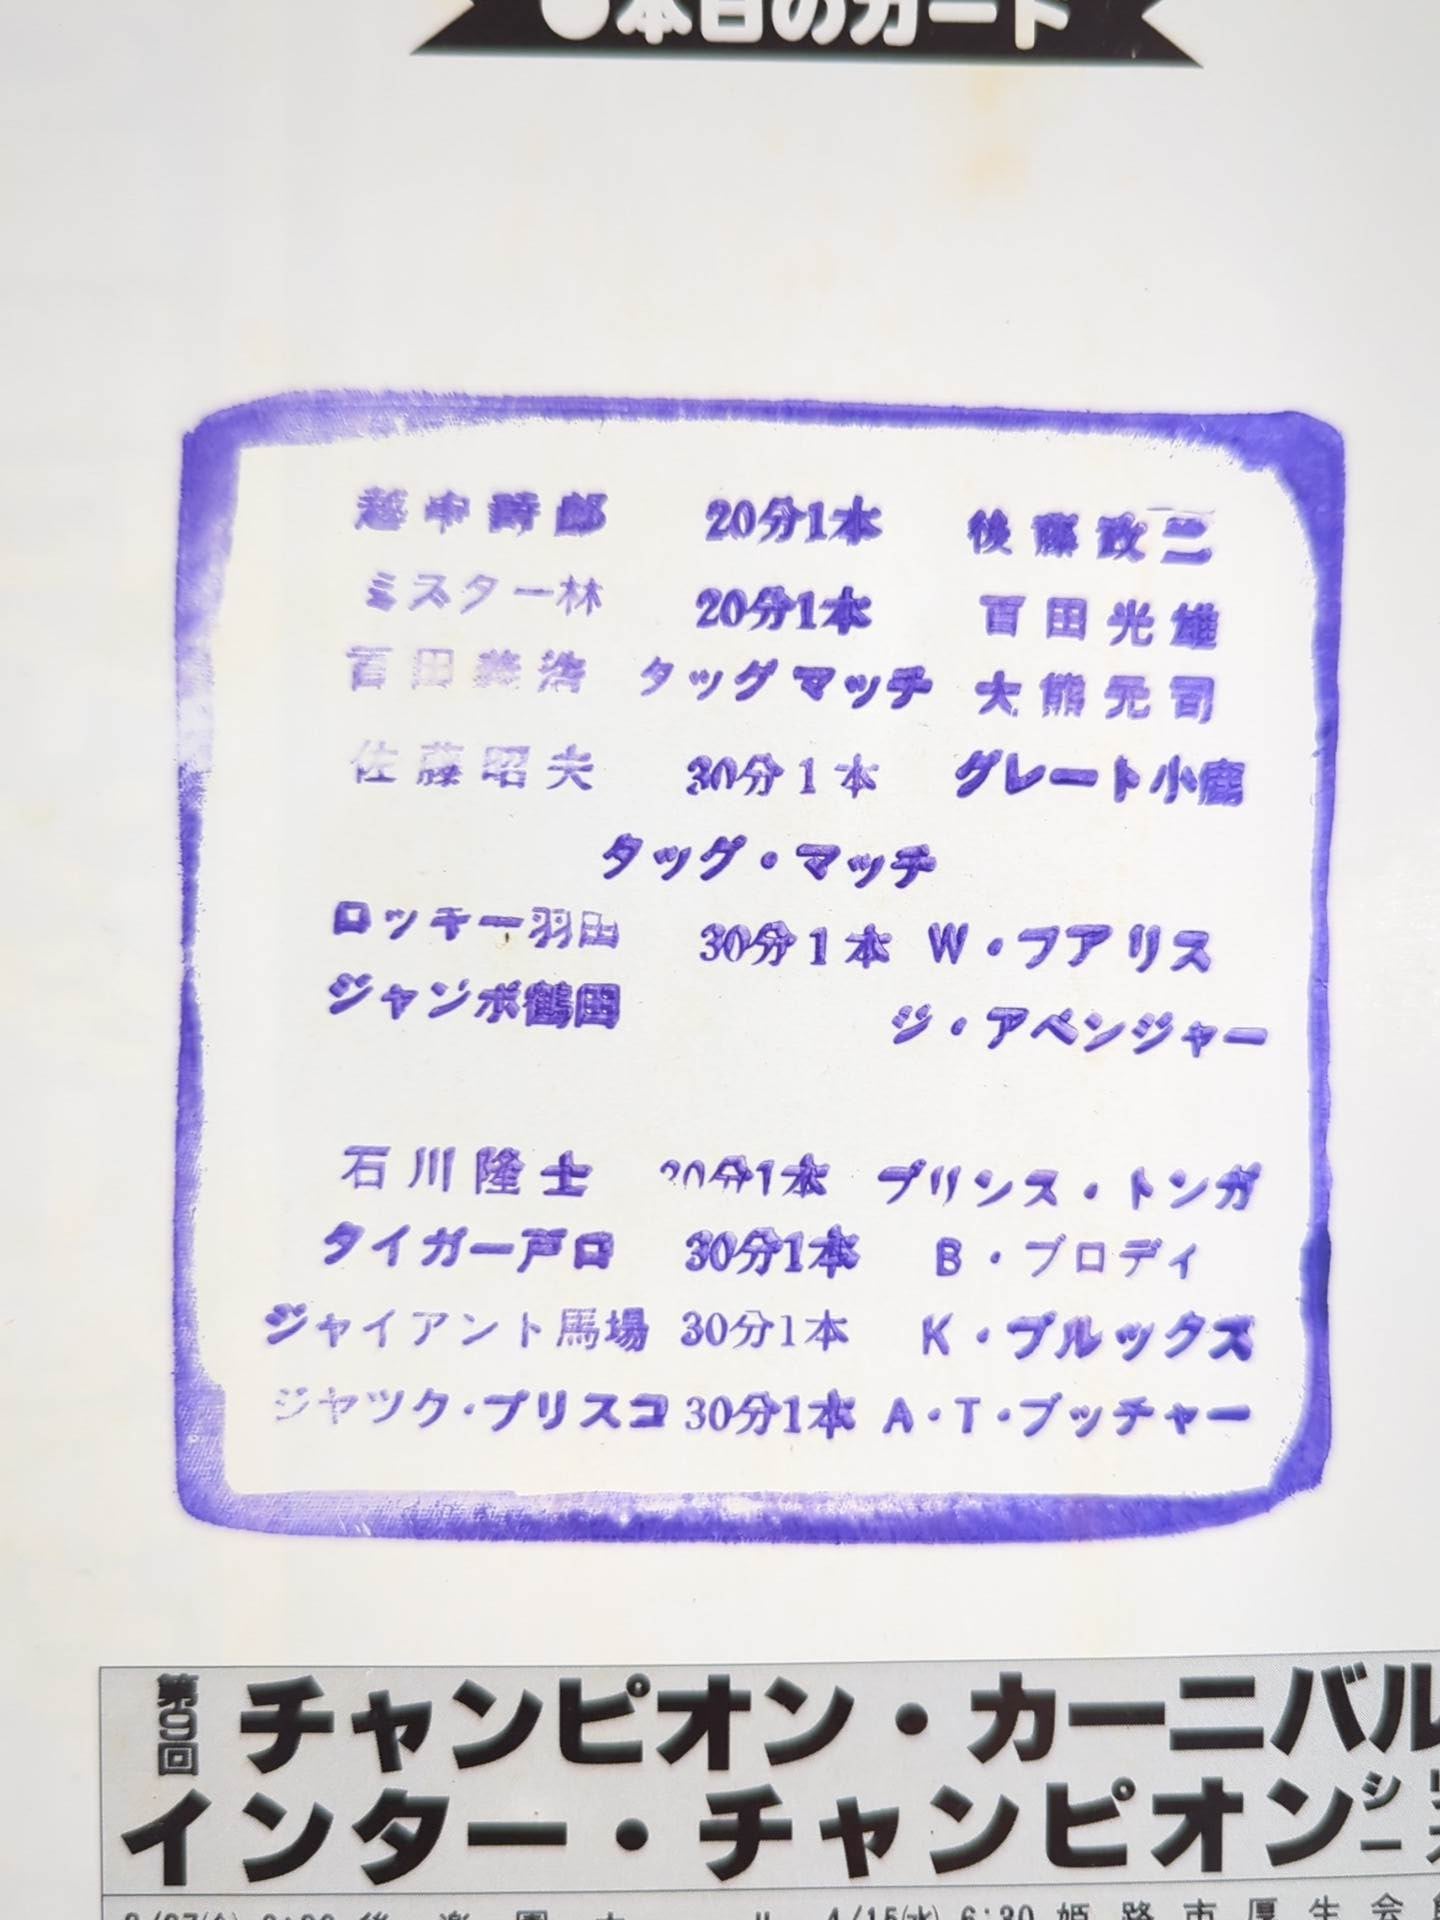 ●本日のカード
越中詩郎 20分1本 後藤政二
ミスター林 20分1本 百田光雄
百田義浩 タッグマッチ 大熊元司
佐藤昭夫 30分1本 グレート小鹿
タッグ・マッチ
ロッキー羽田 30分1本 W・フアリス
ジャンボ鶴田 ジ・アベンジャー
石川隆士 30分1本 プリンス・トンガ
タイガー戸口 30分1本 B・ブロディ
ジャイアント馬場 30分1本 K・ブルックス
ジヤツク・ブリスコ 30分1本 A・T・ブッチャー
第9回 チャンピオン・カーニバル
インター・チャンピオン
4/15(水) 6:30 姫路市厚生会